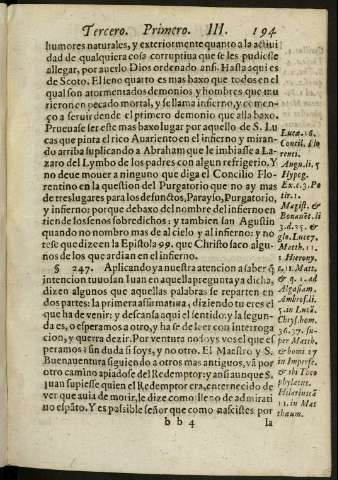 Tercero. Primero. III. 194
humores naturales, y exteriormente quanto a la actiui
dad de qualquiera cosa corruptiua que se les pudiesse
allegar, por auerlo Dios ordenado ansi. Hasta aqui es
de Scoto. El seno quarto es mas baxo que todos en el
qual son atormentados demonios y hombres que mu
rieron en pecado mortal, y se llama infierno, y comen-
ço a seruir dende el primero demonio que alla baxo.
Prueuase ser este mas baxo lugar por aquello de S. Lu
cas que pinta el rico Auariento en el infierno y miran-
do arriba suplicando a Abraham que le imbiasse a La-
zaro del Lymbo de los padres con algun refrigerio, Y
no deue mouer a ninguno que diga el Concilio Flo-
rentino en la question del Purgatorio que no ay mas
de tres lugares para los defunctos, Parayso, Purgatorio,
y infierno: porque debaxo del nombre del infierno en
riende los senos sobredichos: y tambien san Agustin
quando no nombra mas de al cielo y al infierno: y no
tese que dize en la Epistola 99. que Christo saco algu-
nos de los que ardian en el infierno.
§ 247. Aplicando ya nuestra atencion a saber q̃
intencion tuuo san Juan en aquella pregunta ya dicha,
dizen algunos que aquellas palabras se reparten en
dos partes: la primera affirmatiua, diziendo tu eres el
que ha de venir: y descansa aqui el sentido: y la segun
da es, o esperamos a otro, y ha se de leer con interroga
cion, y querra dezir. Por ventura no soys vos el que es
peramos? sin duda si soys, y no otro. El Maestro y S.
Buenauentura siguiendo a otros mas antiguos, vã por
otro camino apiadose del Redemptor: y ansi aunque S.
Juan supiesse quien el Redemptor era, enternecido de
ver que auia de morir, le dize como lleno de admirati
uo espãto. Y es possible señor que como nascistes por
b b 4 la
Lucæ. 16.
Concil. Flo
renti.
Aug. li. 5
Hypog.
Ex. c. 3. Pe
tri. 1.
Magist. &
Bonauẽt. li
3. d. 25. &
glo. Lucæ 7.
Matth. 11.
1. Hierony.
t. 11. Matt.
& q. 1. ad
Algasiam.
Ambros. li.
5. in Lucã.
Chrys. hom.
36. 37. su-
per Matth.
& homi 27
in Imperfe.
& ibi Theo
phylatus.
Hilarius cã
11. in Mat
thæum.